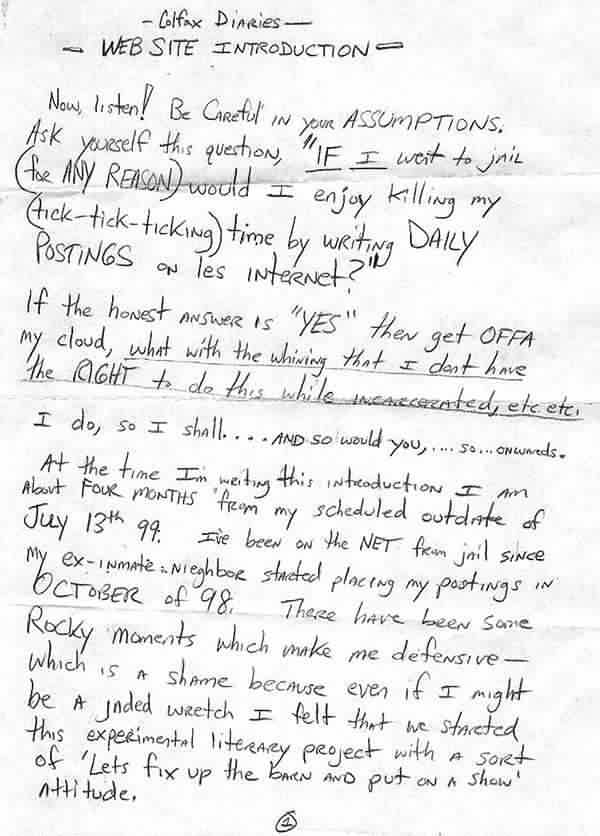 - Colfax Diaries -
- WEB SITE INTRODUCTION -
Now, listen! Be Careful in your ASSUMPTIONS.
Ask yourself this question, "IF I went to jail
(for ANY REASON) would I enjoy killing my
(tick-tick-ticking) time by writing DAILY
POSTINGS on les internet?"
If the honest answer is "YES" then get OFFA
my cloud, what with the whining that I dont have
the RIGHT to do this while incarcerated, etc. etc.
I do, so I shall.... AND SO would you,.... so... onwards.
At the time I'm writing this introduction I am
About FOUR MONTHS from my scheduled outdate of
July 13th 99. I've been on the NET from jail since
my ex-inmate-nieghbor started placing my postings in
OCTOBER of 98. There have been some
Rocky moments which make me defensive—
which is a shame because even if I might
be a jaded wretch I felt that we started
this experimental literary project with a sort
of 'Lets fix up the barn and put on a show'
Attitude.
1